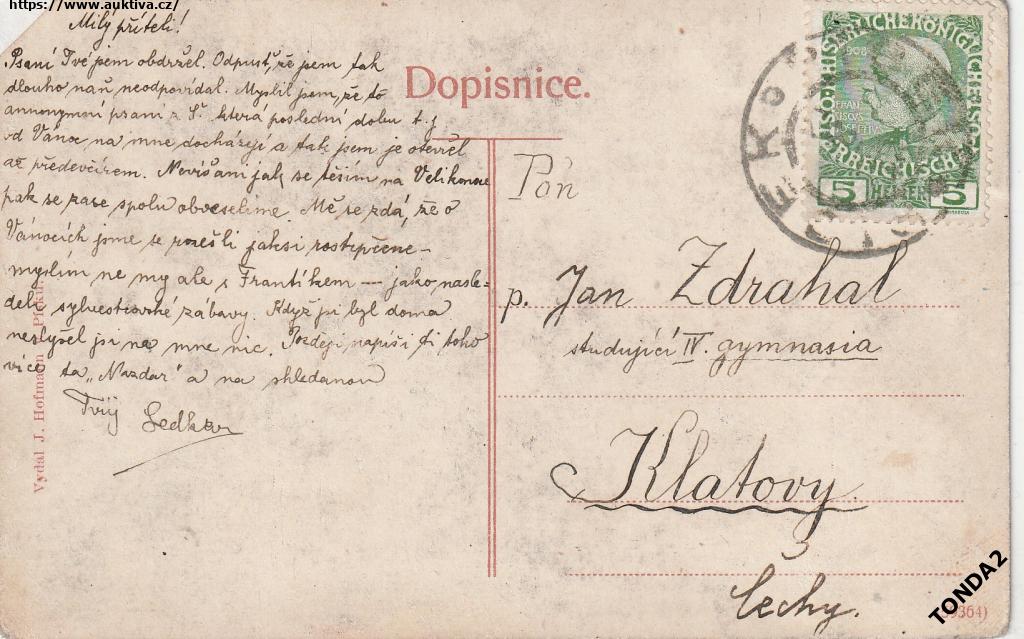 https://www.auktiva.cz/
Milý příteli!
Psaní Tvé jsem obdržel. Odpusť, že jsem tak
dlouho naň neodpovídal. Myslil jsem, že to
annonymní psaní z Š. která poslední dobu t.j.
od Vánoc na mne docházejí a tak jsem je otevřel
až předevčírem. Nevíš ani jak se těším na Velikonoce
pak se zase spolu obveselíme. Mě se zdá, že o
Vánocích jsme se rozešli jaksi roztrpčeně –
myslím ne my ale s Frantíkem — jako násle-
dek sylvestrovské zábavy. Když jsi byl doma
neslyšel jsi na mne nic. Později napíši ti toho
více ta „Nazdar" a na shledanou
Tvůj
Dopisnice.
Pán
p. Jan Zdrahal
studující IV. gymnasia
Klatovy
Čechy.
Vydal J. Hofmann
1908
FRANCISCVS IOSEFVS
5 HELLER 5
TONDA2